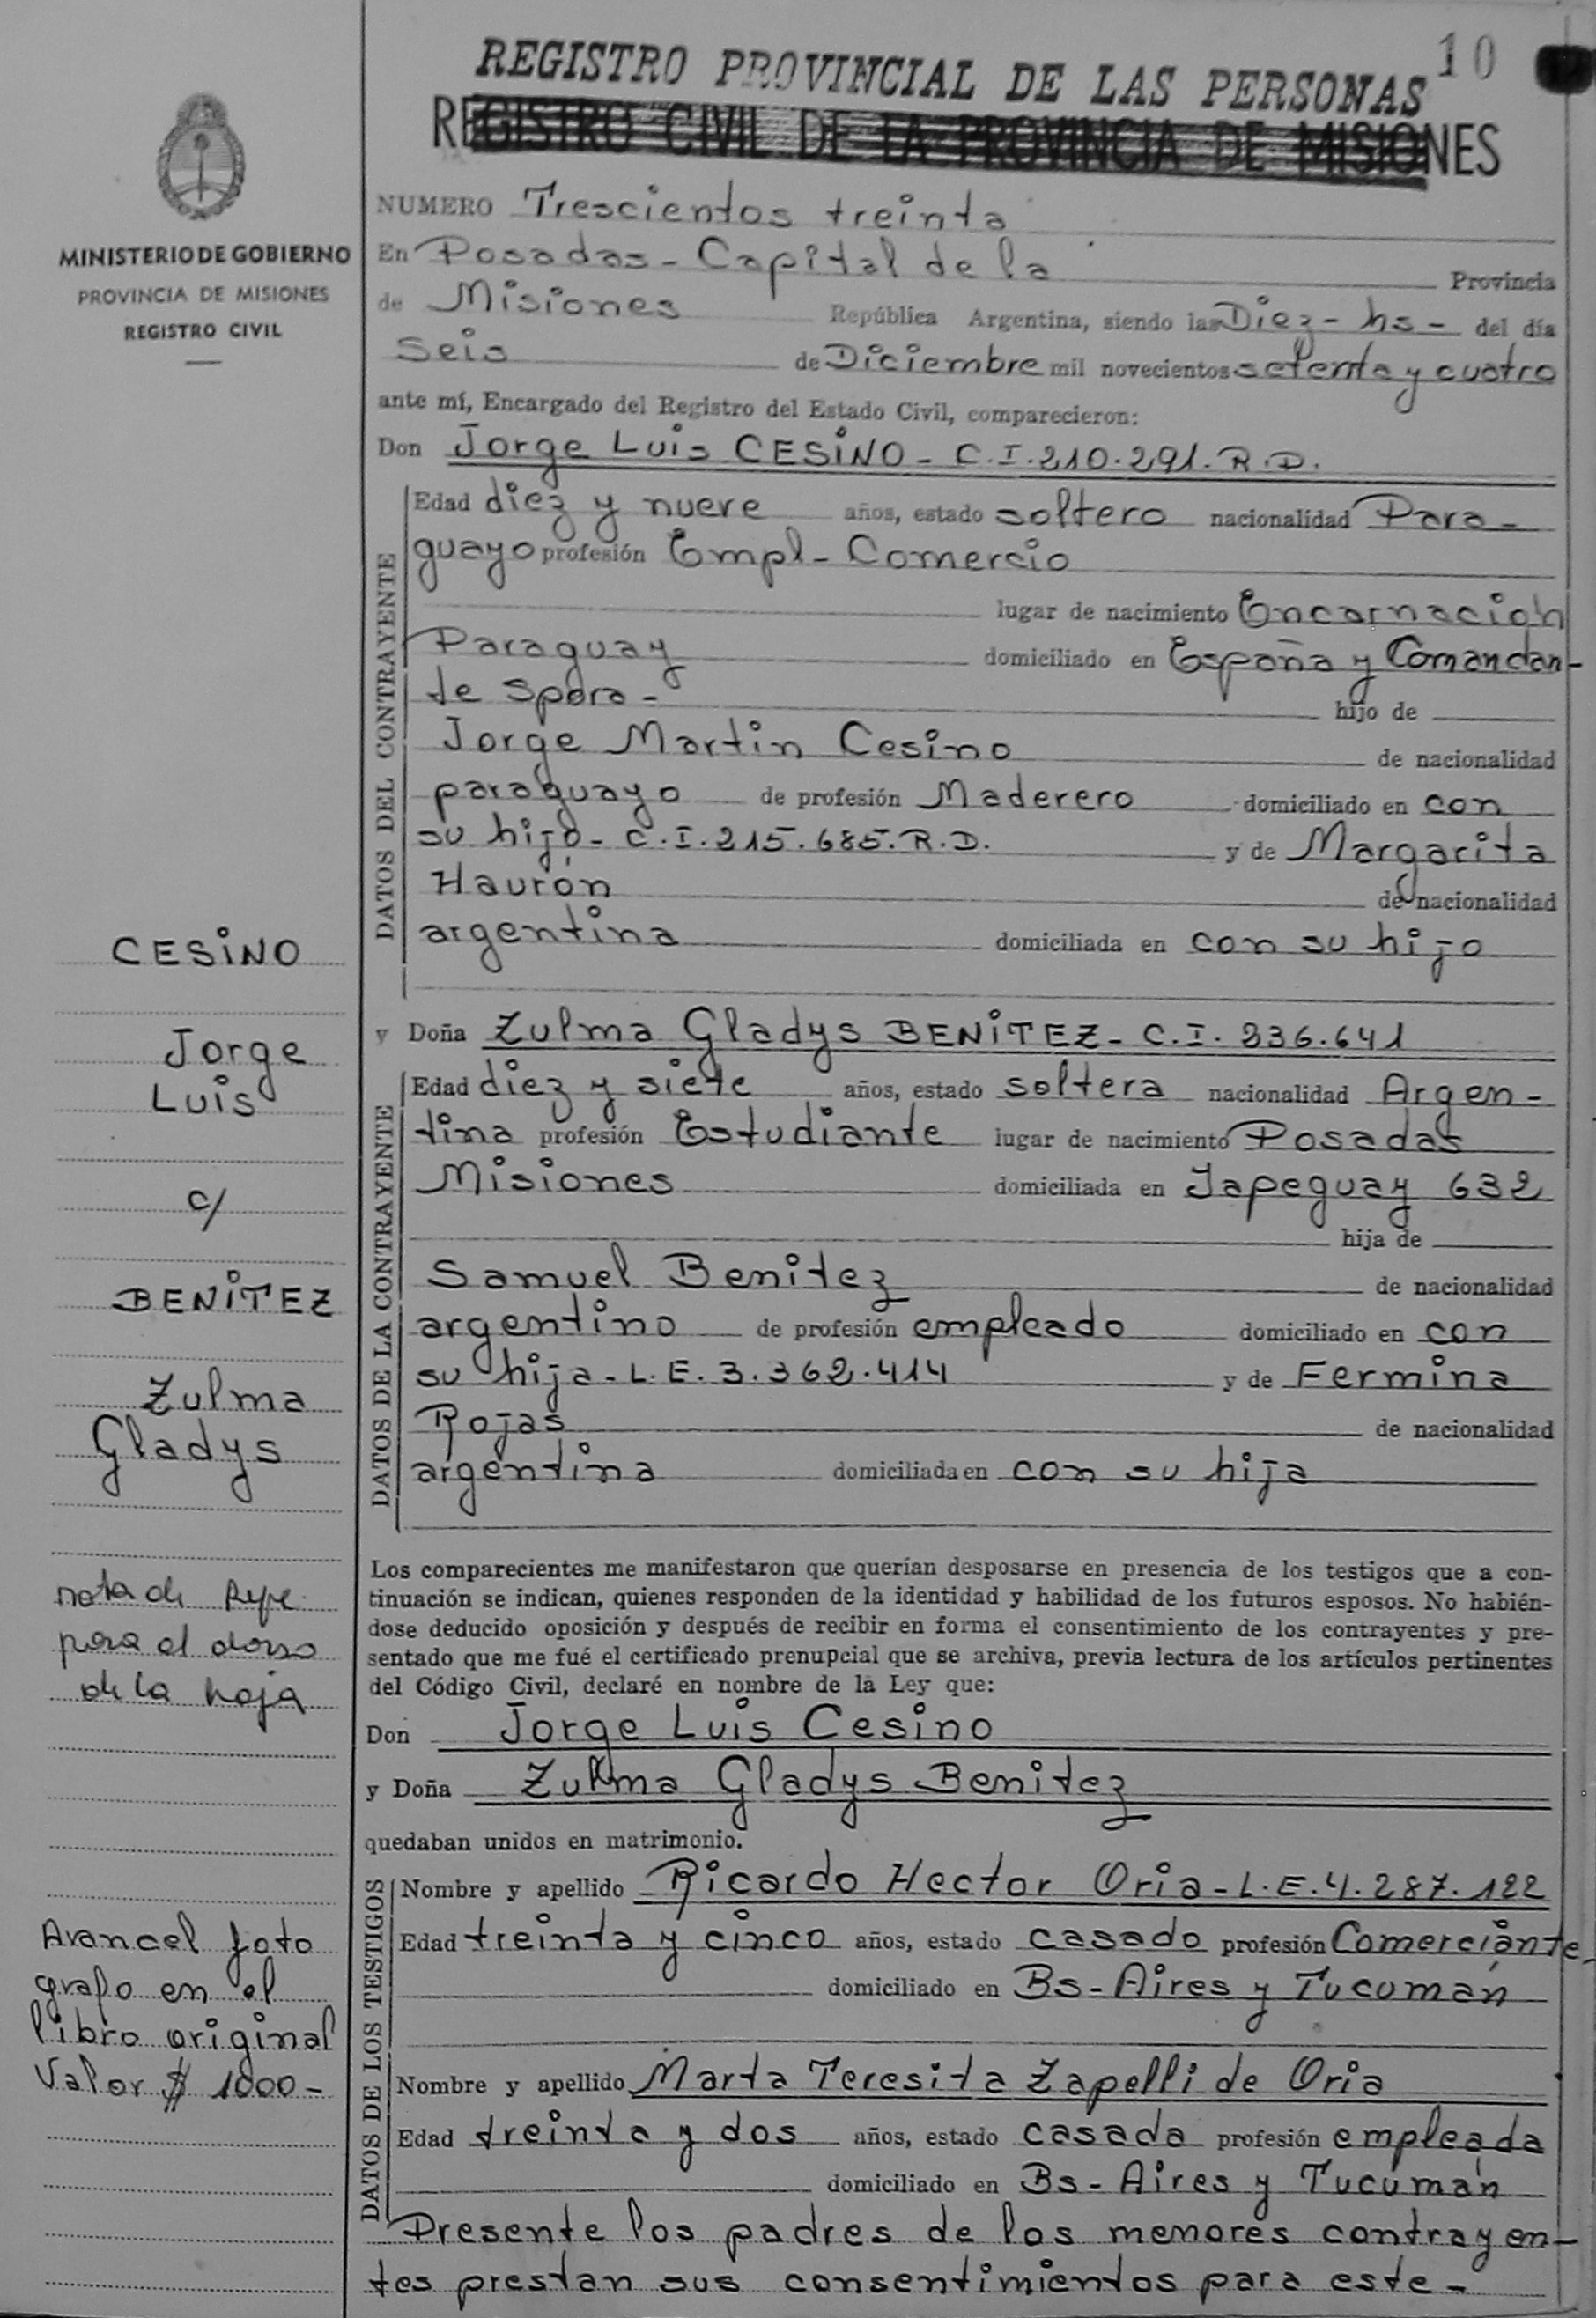 10
REGISTRO PROVINCIAL DE LAS PERSONAS
REGISTRO CIVIL DE LA PROVINCIA DE MISIONES
MINISTERIO DE GOBIERNO
PROVINCIA DE MISIONES
REGISTRO CIVIL
NUMERO Trescientos treinta
En Posadas - Capital de la Provincia
de Misiones República Argentina, siendo las Diez - hs - del día
Seis de Diciembre mil novecientos setenta y cuatro
ante mí, Encargado del Registro del Estado Civil, comparecieron:
Don Jorge Luis CESINO - C.I. 210.291. R.D.
DATOS DEL CONTRAYENTE
Edad diez y nueve años, estado soltero nacionalidad Para-
guayo profesión Empl - Comercio
lugar de nacimiento Encarnación
Paraguay domiciliado en España y Comandan-
te Spora - hijo de
Jorge Martin Cesino de nacionalidad
paraguayo de profesión Maderero domiciliado en con
su hijo - C.I. 215.685. R.D. y de Margarita
Haurón de nacionalidad
argentina domiciliada en con su hijo
y Doña Zulma Gladys BENITEZ - C.I. 236.641
DATOS DE LA CONTRAYENTE
Edad diez y siete años, estado soltera nacionalidad Argen-
tina profesión Estudiante lugar de nacimiento Posadas
Misiones domiciliada en Japeguay 632
hija de
Samuel Benitez de nacionalidad
argentino de profesión empleado domiciliado en con
su hija - L.E. 3.362.414 y de Fermina
Rojas de nacionalidad
argentina domiciliada en con su hija
Los comparecientes me manifestaron que querían desposarse en presencia de los testigos que a con-
tinuación se indican, quienes responden de la identidad y habilidad de los futuros esposos. No habién-
dose deducido oposición y después de recibir en forma el consentimiento de los contrayentes y pre-
sentado que me fué el certificado prenupcial que se archiva, previa lectura de los artículos pertinentes
del Código Civil, declaré en nombre de la Ley que:
Don Jorge Luis Cesino
y Doña Zulma Gladys Benitez
quedaban unidos en matrimonio.
DATOS DE LOS TESTIGOS
Nombre y apellido Ricardo Hector Oria - L.E. 4.287.122
Edad treinta y cinco años, estado casado profesión Comerciante
domiciliado en Bs - Aires y Tucumán
Nombre y apellido Marta Teresita Zapelli de Oria
Edad treinta y dos años, estado casada profesión empleada
domiciliado en Bs - Aires y Tucumán
Presente los padres de los menores contrayen-
tes prestan sus consentimientos para este -
CESINO
Jorge
Luis
c/
BENITEZ
Zulma
Gladys
nota de Refe
para al dorso
de la hoja
Arancel foto
grafo en el
libro original
Valor $ 1000 -